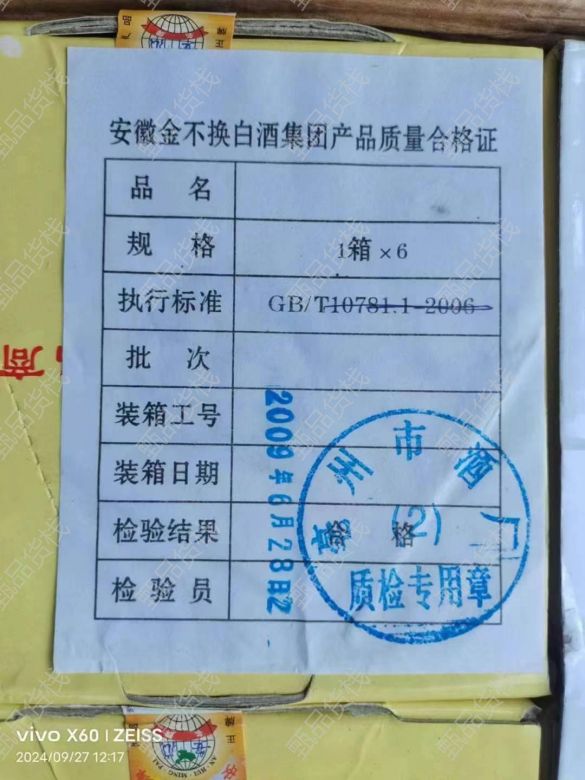 安徽金不换白酒集团产品质量合格证
品名
规格 1箱×6
执行标准 GB/T10781.1-2006
批次
装箱工号
装箱日期 2009年6月28日2
检验结果 合格
检验员
亳州市酒厂
(2)
质检专用章
商
甄品货栈
vivo X60 | ZEISS
2024/09/27 12:17
AN HUI MING PAI